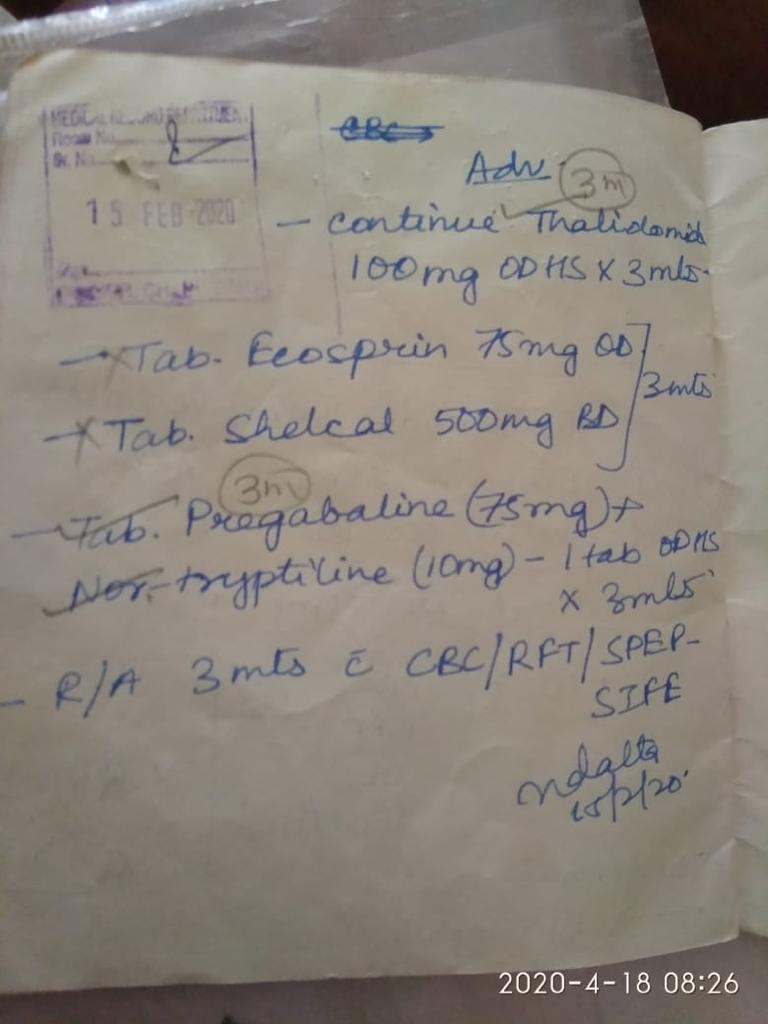 MEDICAL RECORD DEPARTMENT
Room No.
Sr. No.
15 FEB 2020
CBC
Adv
3m
- continue Thalidomid
100mg OD HS x 3mts
- x Tab. Ecosprin 75mg OD
3mts
- x Tab. Shelcal 500mg BD
3m
- Tab. Pregabaline (75mg) +
Nor-tryptiline (10mg) - 1 tab OD HS
x 3mts
- R/A 3mts c̄ CBC/RFT/SPEP-
SIFE
15/2/20
2020-4-18 08:26